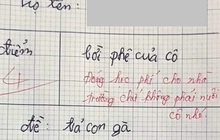 Họ tên:
điểm
lời phê của cô
4
Đóng học phí cho nhà
trường chứ không phải nuôi
cô nhé!
đề: tả con gà